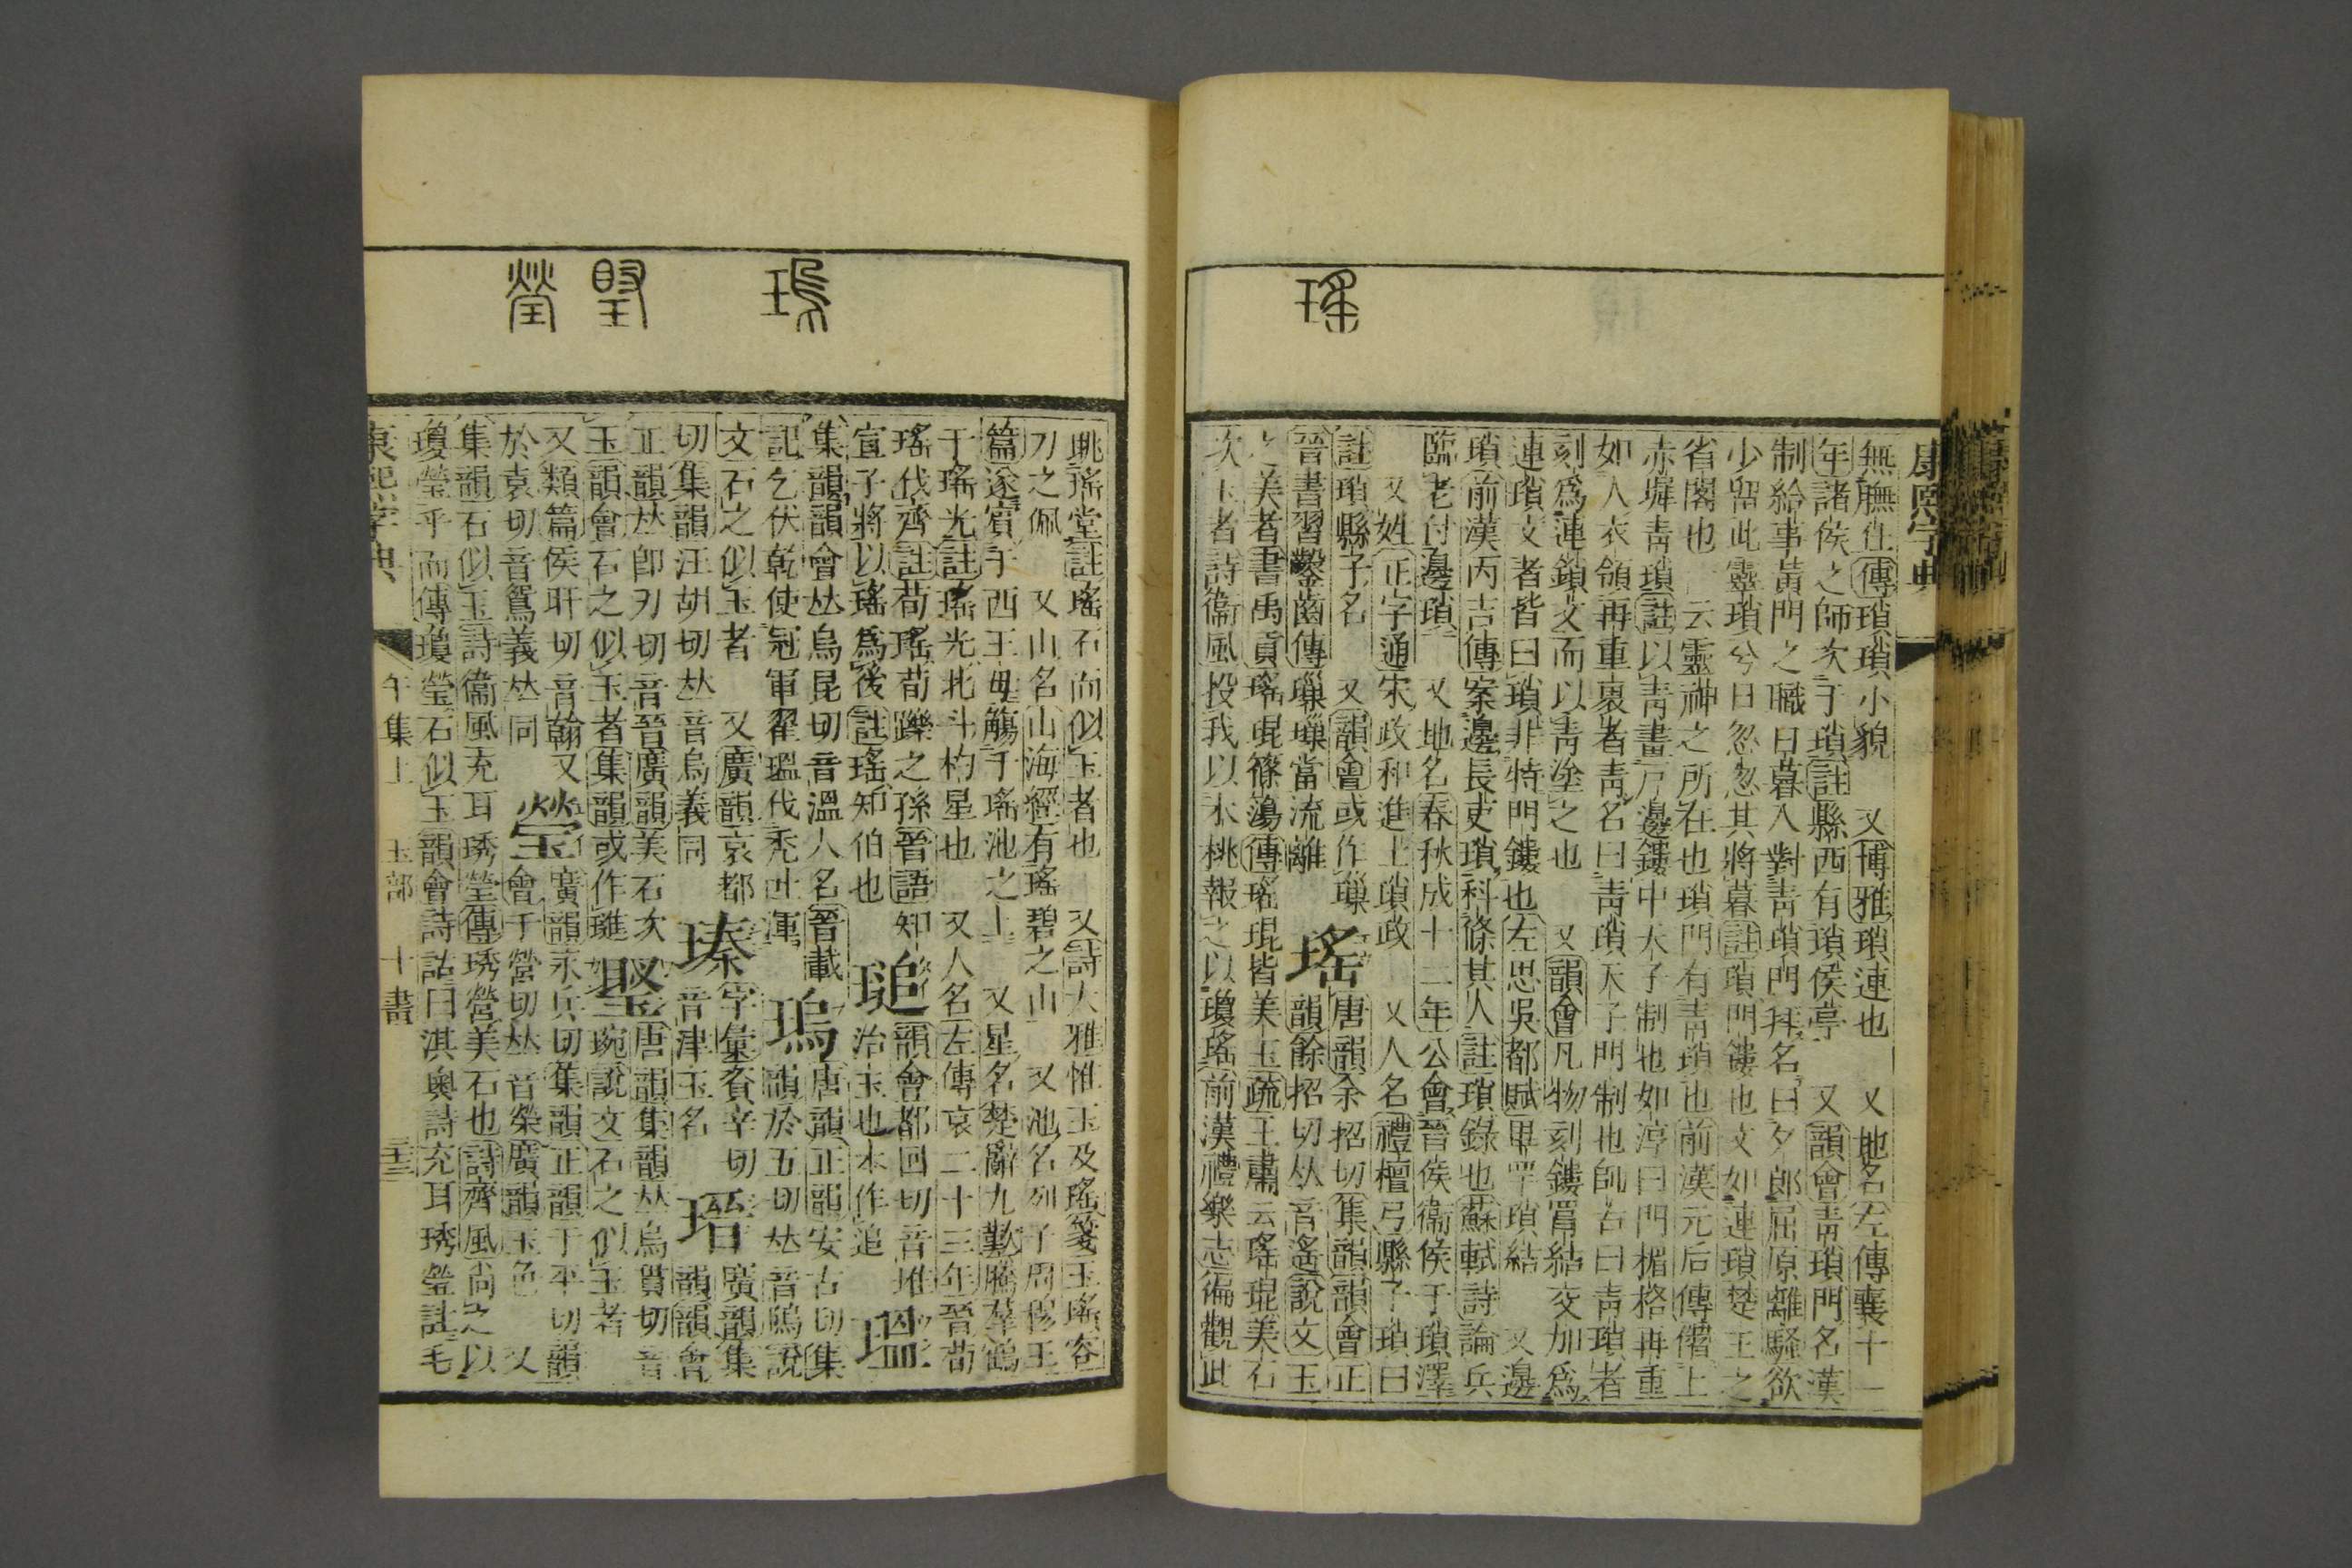 康熙字典
無膴仕傳瑣瑣小貌　又博雅瑣連也　又地名左傳襄十一
年諸侯之師次于瑣註縣西有瑣侯亭　又韻會靑瑣門名漢
制給事黃門之職日暮入對靑瑣門拜名曰夕郞屈原離騷欲
少留此靈瑣兮日忽忽其將暮註瑣門鏤也文如連瑣楚王之
省閣也一云靈神之所在也瑣門有靑瑣也前漢元后傳僭上
赤墀靑瑣註以靑畫戸邊鏤中天子制也如淳曰門楣格再重
如人衣領再重裏者靑名曰靑瑣天子門制也師古曰靑瑣者
刻爲連鎖文而以靑塗之也　又韻會凡物刻鏤罥結交加爲
連瑣文者皆曰瑣非特門鏤也左思吳都賦畢罕瑣結　又邊
瑣前漢丙吉傳案邊長吏瑣科條其人註瑣錄也蘇軾詩論兵
臨老付邊瑣　又地名春秋成十二年公會晉侯衞侯于瑣澤
又姓正字通宋政和進士瑣政　又人名禮檀弓縣子瑣曰
註瑣縣子名　又韻會或作璅
晉書習鑿齒傳璅璅當流離
瑤
唐韻余招切集韻韻會正
韻餘招切𠀤音遙說文玉
之美者書禹貢瑤琨篠簜傳瑤琨皆美玉疏王肅云瑤琨美石
次玉者詩衞風投我以木桃報之以瓊瑤前漢禮樂志徧觀此
眺瑤堂註瑤石而似玉者也　又詩大雅惟玉及瑤箋玉瑤容
刀之佩　又山名山海經有瑤碧之山　又池名列子周穆王
篇遂賓于西王母觴于瑤池之上　又星名楚辭九歎騰羣鶴
于瑤光註瑤光北斗杓星也　又人名左傳哀二十三年晉荀
瑤伐齊註荀瑤荀躒之孫晉語知
宣子將以瑤爲後註瑤知伯也
𤧸
韻會都回切音堆
治玉也本作追
瑥
集韻韻會𠀤烏昆切音溫人名晉載
記乞伏乾使冠軍翟瑥伐禿吐渾
瑦
唐韻正韻安古切集
韻於五切𠀤音隖說
文石之似玉者　又廣韻哀都
切集韻汪胡切𠀤音烏義同
瑧
字彙資辛切
音津玉名
瑨
廣韻集
韻韻會
正韻𠀤卽刃切音晉廣韻美石次
玉韻會石之似玉者集韻或作璡
㻴
唐韻集韻𠀤烏貫切音
琬說文石之似玉者
又類篇侯旰切音翰又
於袁切音鴛義𠀤同
瑩
廣韻永兵切集韻正韻于平切韻
會于營切𠀤音榮廣韻玉色　又
集韻石似玉詩衞風充耳琇瑩傳琇瑩美石也詩齊風尚之以
瓊瑩乎而傳瓊瑩石似玉韻會詩詁曰淇奧詩充耳琇瑩註毛
康熙字典　午集上　玉部　十畫